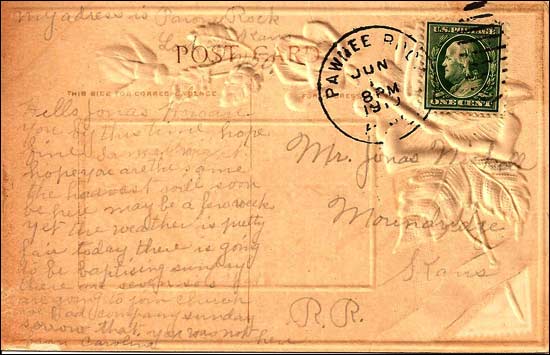 My adress is Pawne Rock
Kans
POST CARD
THIS SIDE FOR CORRESPONDENCE
PAWNEE ROCK
JUN
8 PM
191
U.S. POSTAGE
ONE CENT
Hello Jonas
you by this time hope
fine
hope you are the same
the harvest will soon
be here may be a few weeks
yet the weather is pretty
fair today there is going
to be baptising sunday
there are seven
are going to join church
we had company sunday
sorrow that you was not here
Caroline
Mr. Jonas
Moundridge
Kans
R.R.